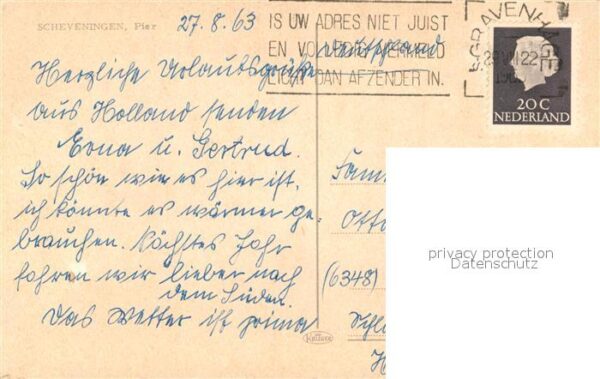 SCHEVENINGEN, Pier
27.8.63
IS UW ADRES NIET JUIST
EN VOLLEDIG VERMELD
LICHT DAN AFZENDER IN.
'S GRAVENHAGE
22
20 C
NEDERLAND
Deutschland
Herzliche Urlaubsgrüße
aus Holland senden
Erna u. Gertrud.
So schön wie es hier ist,
ich könnte es wärmer ge-
brauchen. Nächstes Jahr
fahren wir lieber nach
dem Süden.
Das Wetter ist prima
Fam
Otto
(6348)
privacy protection
Datenschutz